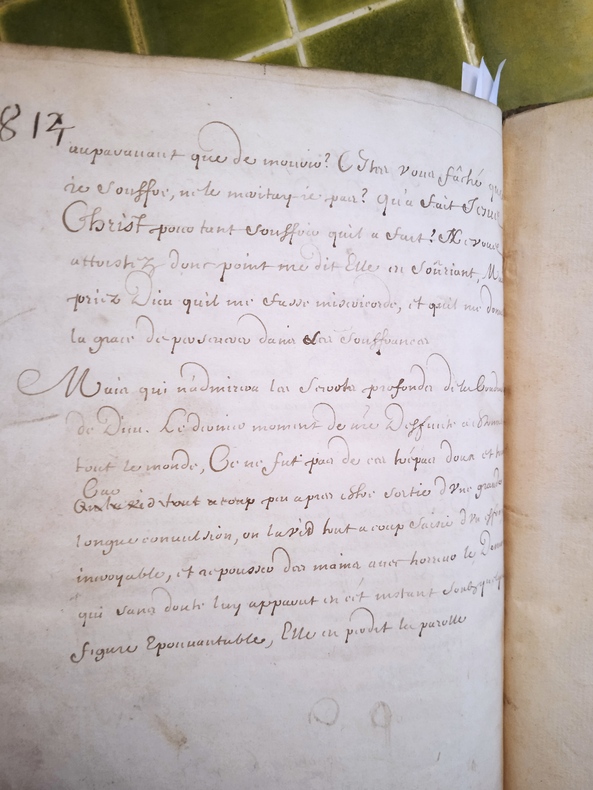 812
auparauant que de mourir? Estes vous fâché que
ie souffre, ne le meritay ie pas? Qu'a fait Jesus
Christ pour tant souffrir quil a fait? Ne vous
attristez donc point me dit Elle en soûriant, Mais
priez Dieu quil me fasse misericorde, et quil me donne
la grace de perseuerer dans les souffrances
Mais qui n'admirera les secrets profonds de la
de Dieu. Le dernier moment de nre Deffunte a
tout le monde, Ce ne fut pas de ces trépas doux et
Car
tout acoup peu apres estre sortie d'vne grande
longue conuulsion, on la vid tout a coup saisie d'vn
incroyable, et repousser des mains auec horreur le
qui sans doute luy apparut en cét instant soubz quelque
figure Epouuantable, Elle en perdit la parolle